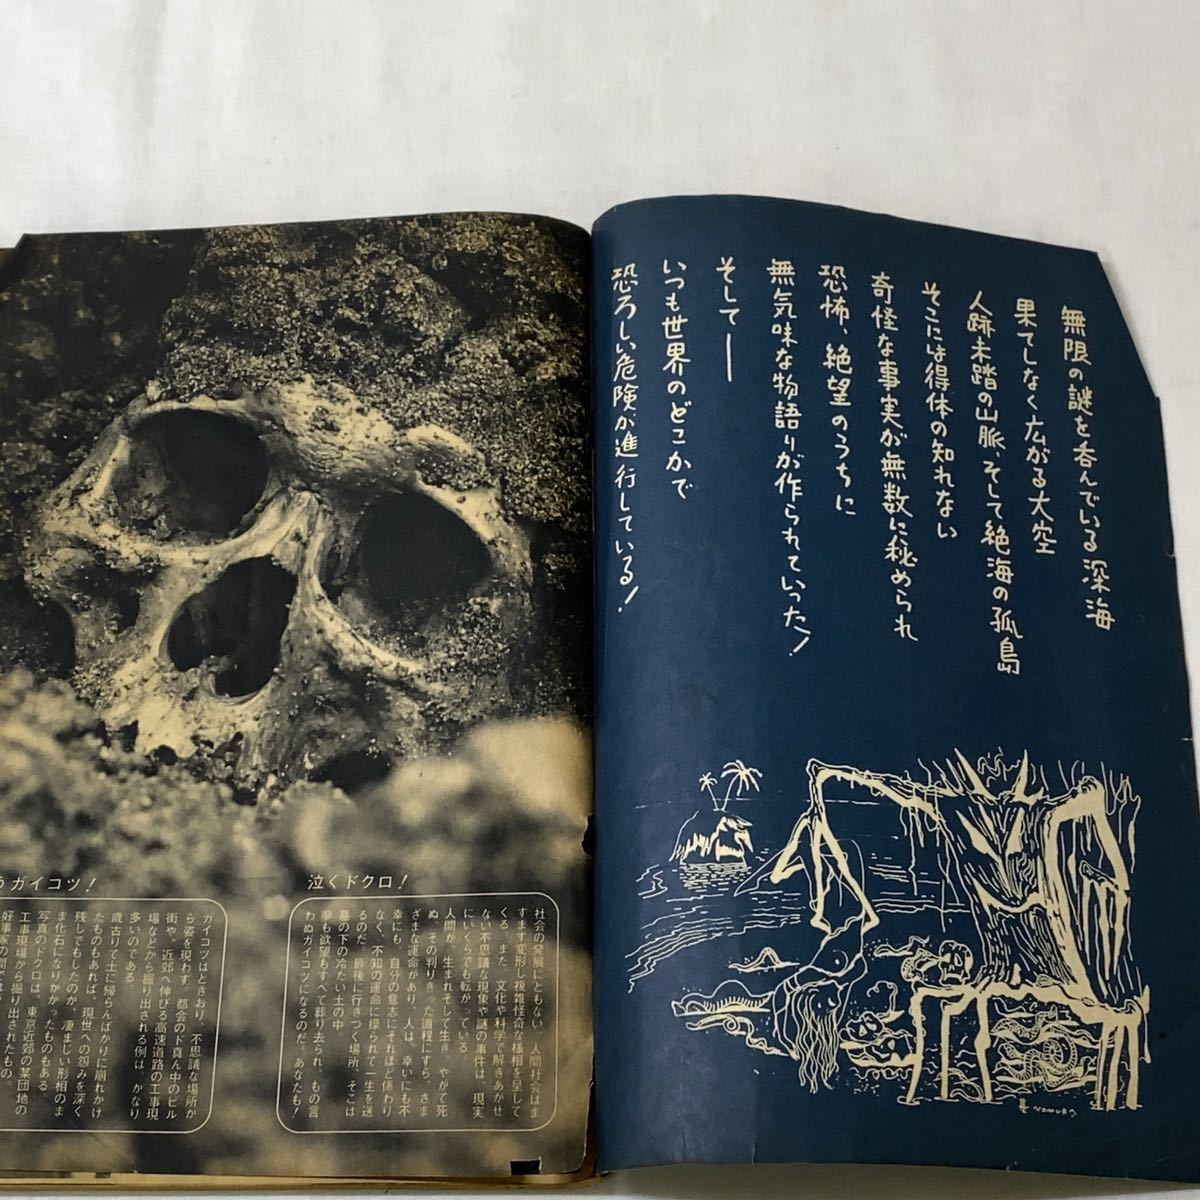 無限の謎を呑んでいる深海
果てしなく広がる大空
人跡未踏の山脈、そして絶海の孤島
そこには得体の知れない
奇怪な事実が無数に秘められ
恐怖、絶望のうちに
無気味な物語りが作られていった!
そして──
いつも世界のどこかで
恐ろしい危険が進行している!
NOMURA
泣くドクロ!
社会の発展にともない、人間社会はま
すます変形し複雑怪奇な様相を呈して
くる。また、文化や科学で解きあかせ
ない不思議な現象や謎の事件は、現実
にいくらでも転がっている。
人間が、生まれそして生き、やがて死
ぬ、その判りきった道程にすら、さま
ざまな運命があり、人は、幸いにも不
幸にも、自分の意志にそれほど係わり
なく、不知の運命に操られて一生を送
るのだ。最後に行きつく場所、そこは
墓の下の冷たい土の中
夢も欲望もすべて葬り去られ、もの言
わぬガイコツになるのだ、あなたも!
うガイコツ!
ガイコツはときおり、不思議な場所が
ら姿を現わす。都会のド真ん中のビル
街や、近郊へ伸びる高速道路の工事現
場などから掘り出される例は、かなり
多いのである。
歳古りて土に帰らんばかりに崩れかけ
たものもあれば、現世への怨みを深く
残してでもしたのか、凄まじい形相のま
ま化石になりかかったものもある。
写真のドクロは、東京近郊の某団地の
工事現場から掘り出されたもの。